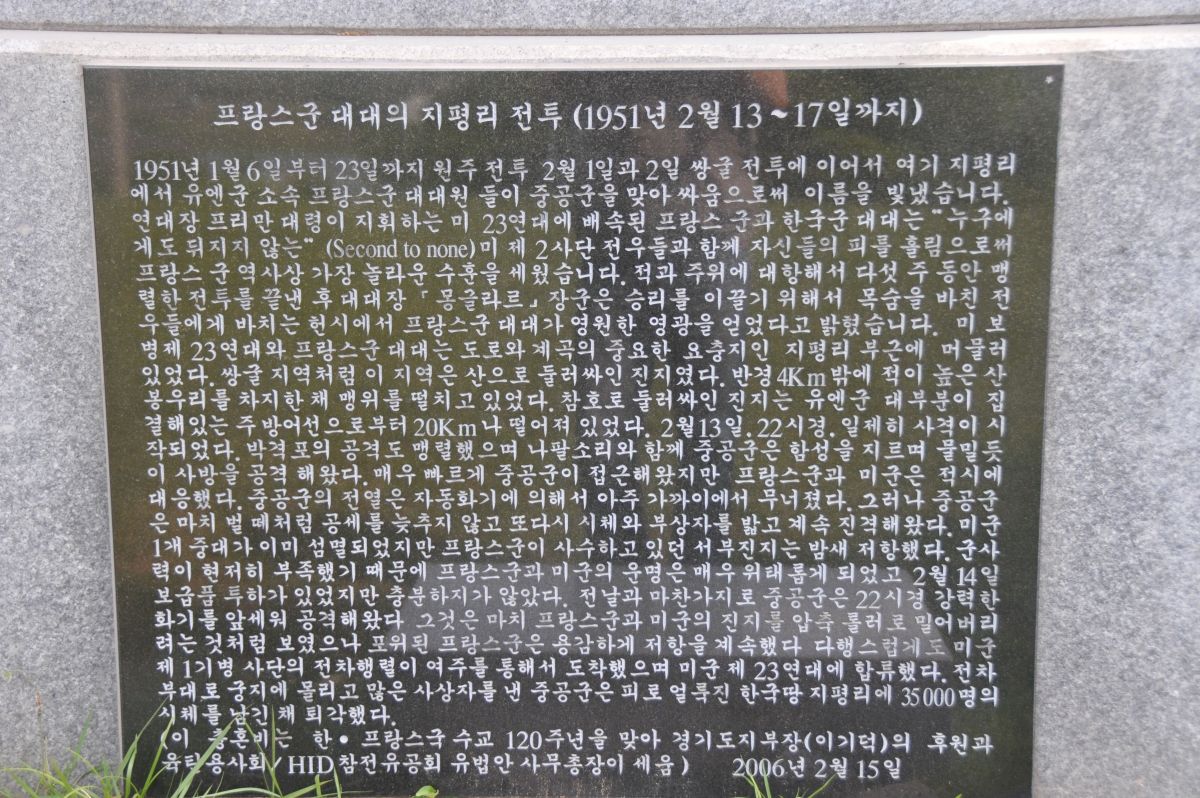 프랑스군 대대의 지평리 전투 (1951년 2월 13~17일까지)
1951년 1월 6일부터 23일까지 원주 전투 2월 1일과 2일 쌍굴 전투에 이어서 여기 지평리
에서 유엔군 소속 프랑스군 대대원 들이 중공군을 맞아 싸움으로써 이름을 빛냈습니다.
연대장 프리만 대령이 지휘하는 미 23연대에 배속된 프랑스 군과 한국군 대대는 "누구에
게도 뒤지지 않는" (Second to none) 미 제 2사단 전우들과 함께 자신들의 피를 흘림으로써
프랑스 군 역사상 가장 놀라운 수훈을 세웠습니다. 적과 주위에 대항해서 다섯 주 동안 맹
렬한 전투를 끝낸 후 대대장 「몽클라르」 장군은 승리를 이끌기 위해서 목숨을 바친 전
우들에게 바치는 헌시에서 프랑스군 대대가 영원한 영광을 얻었다고 밝혔습니다. 미 보
병제 23연대와 프랑스군 대대는 도로와 계곡의 중요한 요충지인 지평리 부근에 머물러
있었다. 쌍굴 지역처럼 이 지역은 산으로 둘러싸인 진지였다. 반경 4Km 밖에 적이 높은 산
봉우리를 차지한 채 맹위를 떨치고 있었다. 참호로 둘러싸인 진지는 유엔군 대부분이 집
결해있는 주 방어선으로부터 20Km나 떨어져 있었다. 2월 13일. 22시경. 일제히 사격이 시
작되었다. 박격포의 공격도 맹렬했으며 나팔소리와 함께 중공군은 함성을 지르며 물밀듯
이 사방을 공격 해왔다. 매우 빠르게 중공군이 접근해왔지만 프랑스군과 미군은 적시에
대응했다. 중공군의 전열은 자동화기에 의해서 아주 가까이에서 무너졌다. 그러나 중공군
은 마치 벌 떼처럼 공세를 늦추지 않고 또다시 시체와 부상자를 밟고 계속 진격해왔다. 미군
1개 중대가 이미 섬멸되었지만 프랑스군이 사수하고 있던 서부진지는 밤새 저항했다. 군사
력이 현저히 부족했기 때문에 프랑스군과 미군의 운명은 매우 위태롭게 되었고 2월 14일
보급품 투하가 있었지만 충분하지가 않았다. 전날과 마찬가지로 중공군은 22시경 강력한
화기를 앞세워 공격해왔다. 그것은 마치 프랑스군과 미군의 진지를 압축 롤러로 밀어버리
려는 것처럼 보였으나 포위된 프랑스군은 용감하게 저항을 계속했다. 다행스럽게도 미군
제 1기병 사단의 전차행렬이 여주를 통해서 도착했으며 미군 제 23연대에 합류했다. 전차
부대로 궁지에 몰리고 많은 사상자를 낸 중공군은 피로 얼룩진 한국땅 지평리에 35000명의
시체를 남긴 채 퇴각했다.
(이 충혼비는 한·프랑스국 수교 120주년을 맞아 경기도지부장(이기덕)의 후원과
육탄용사회/HID참전유공회 유법안 사무총장이 세움) 2006년 2월 15일